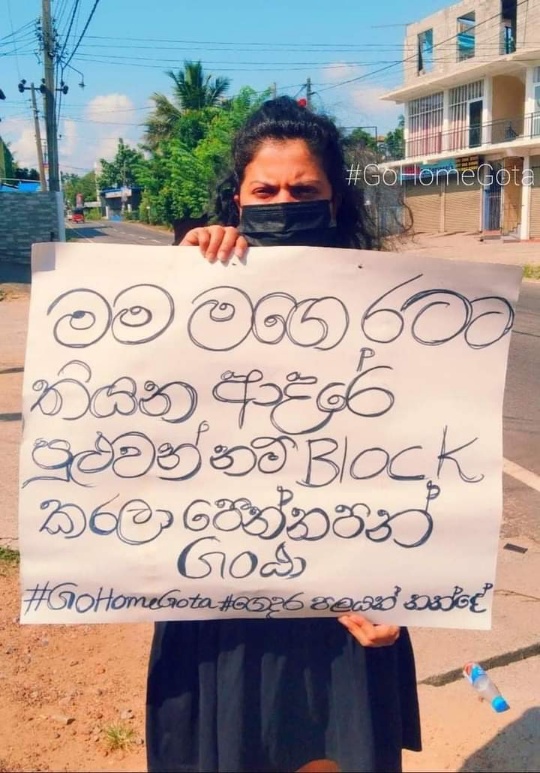 #GoHomeGota
මම මගෙ රටට
තියන ආදරේ
පුළුවන් නම් Block
කරලා පෙන්නපන්
ගොඨා
#GoHomeGota #ගෙදර පලයන් නන්දේ